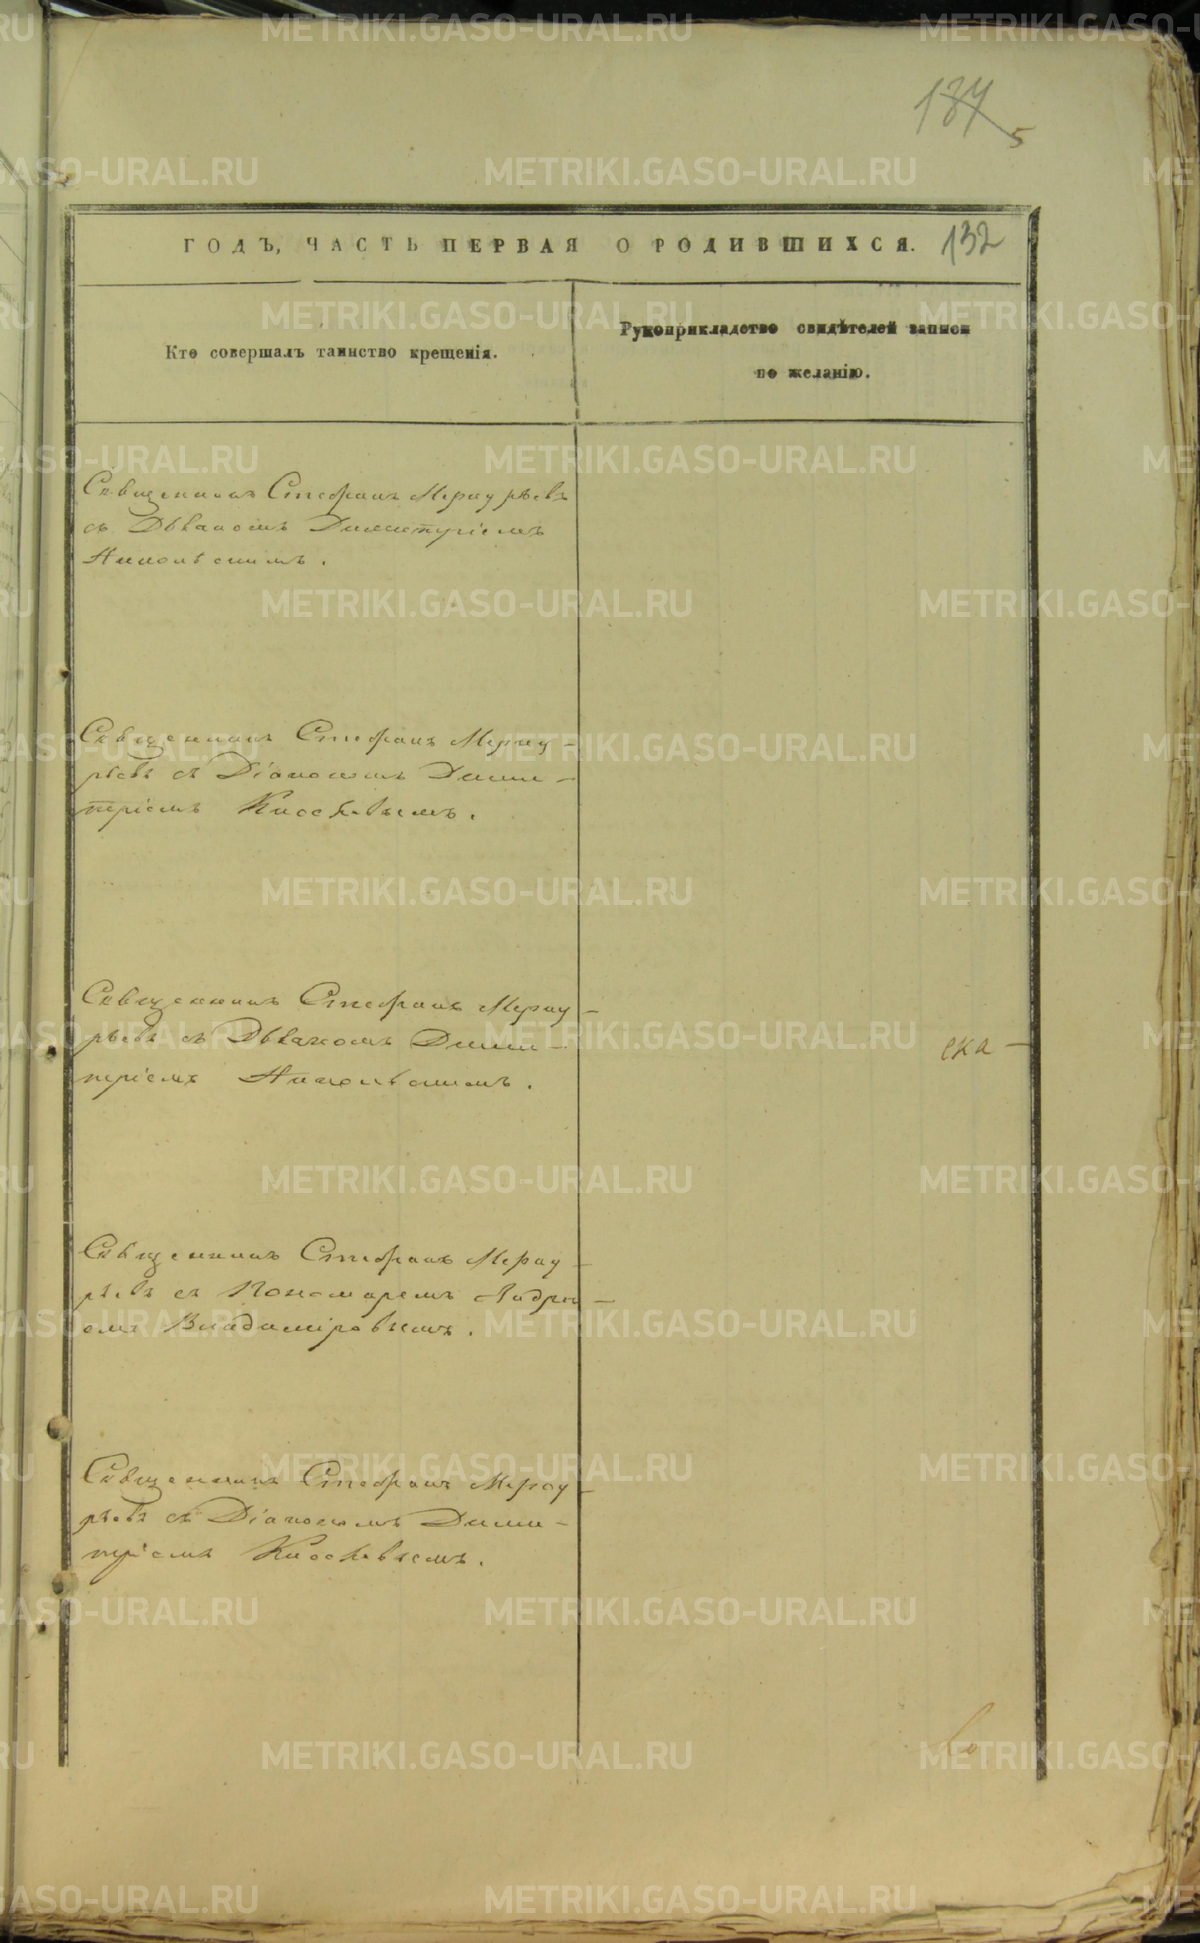 187
5
ГОДЪ, ЧАСТЬ ПЕРВАЯ О РОДИВШИХСЯ.
132
Кто совершалъ таинство крещенія.
Рукоприкладство свидѣтелей записи
по желанію.
Священникъ Стефанъ Меркурьевъ
съ Дьякономъ Димитріемъ
Никольскимъ.
Священникъ Стефанъ Мерку-
рьевъ съ Діакономъ Дими-
тріемъ
Священникъ Стефанъ Мерку-
рьевъ съ Дьякономъ Дими-
тріемъ Никольскимъ.
Священникъ Стефанъ Мерку-
рьевъ съ Пономаремъ Андре-
емъ Владиміровымъ.
Священникъ Стефанъ Мерку-
рьевъ съ Діакономъ Дими-
тріемъ
METRIKI.GASO-URAL.RU